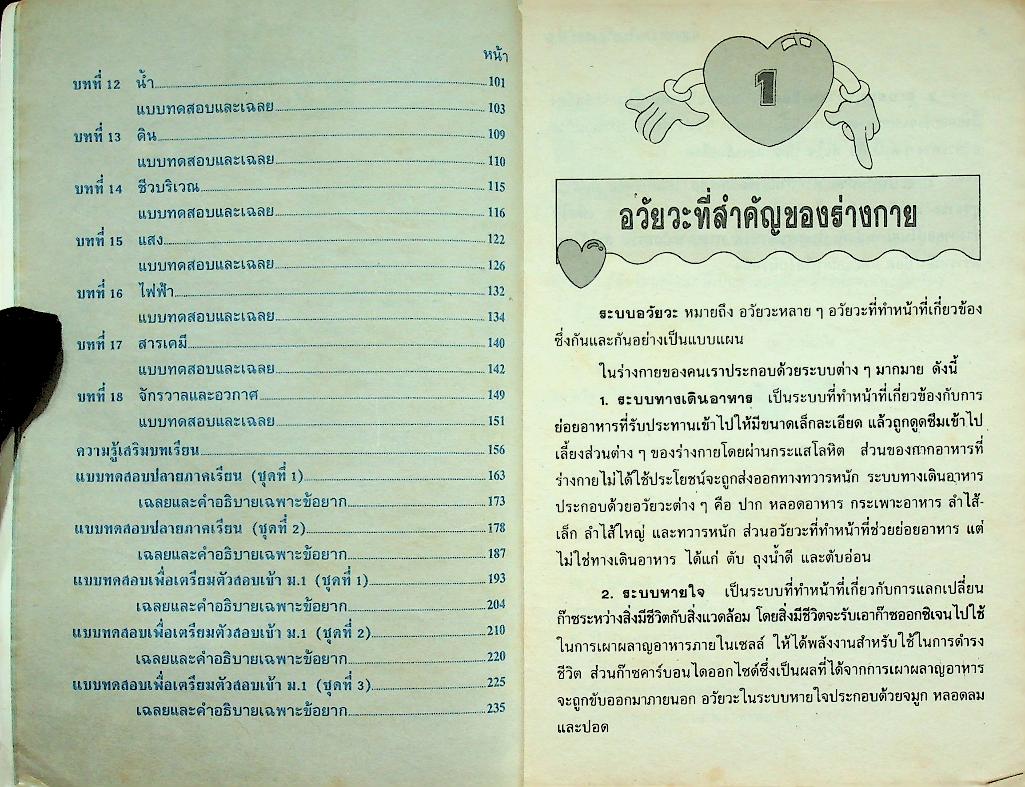 หน้า
บทที่ 12 น้ำ 101
แบบทดสอบและเฉลย 103
บทที่ 13 ดิน 109
แบบทดสอบและเฉลย 110
บทที่ 14 ชีวบริเวณ 115
แบบทดสอบและเฉลย 116
บทที่ 15 แสง 122
แบบทดสอบและเฉลย 126
บทที่ 16 ไฟฟ้า 132
แบบทดสอบและเฉลย 134
บทที่ 17 สารเคมี 140
แบบทดสอบและเฉลย 142
บทที่ 18 จักรวาลและอวกาศ 149
แบบทดสอบและเฉลย 151
ความรู้เสริมบทเรียน 156
แบบทดสอบปลายภาคเรียน (ชุดที่ 1) 163
เฉลยและคำอธิบายเฉพาะข้อยาก 173
แบบทดสอบปลายภาคเรียน (ชุดที่ 2) 178
เฉลยและคำอธิบายเฉพาะข้อยาก 187
แบบทดสอบเพื่อเตรียมตัวสอบเข้า ม.1 (ชุดที่ 1) 193
เฉลยและคำอธิบายเฉพาะข้อยาก 204
แบบทดสอบเพื่อเตรียมตัวสอบเข้า ม.1 (ชุดที่ 2) 210
เฉลยและคำอธิบายเฉพาะข้อยาก 220
แบบทดสอบเพื่อเตรียมตัวสอบเข้า ม.1 (ชุดที่ 3) 225
เฉลยและคำอธิบายเฉพาะข้อยาก 235
1
อวัยวะที่สำคัญของร่างกาย
ระบบอวัยวะ หมายถึง อวัยวะหลาย ๆ อวัยวะที่ทำหน้าที่เกี่ยวข้อง
ซึ่งกันและกันอย่างเป็นแบบแผน
ในร่างกายของคนเราประกอบด้วยระบบต่าง ๆ มากมาย ดังนี้
1. ระบบทางเดินอาหาร เป็นระบบที่ทำหน้าที่เกี่ยวข้องกับการ
ย่อยอาหารที่รับประทานเข้าไปให้มีขนาดเล็กละเอียด แล้วถูกดูดซึมเข้าไป
เลี้ยงส่วนต่าง ๆ ของร่างกายโดยผ่านกระแสโลหิต ส่วนของกากอาหารที่
ร่างกายไม่ได้ใช้ประโยชน์จะถูกส่งออกทางทวารหนัก ระบบทางเดินอาหาร
ประกอบด้วยอวัยวะต่าง ๆ คือ ปาก หลอดอาหาร กระเพาะอาหาร ลำไส้-
เล็ก ลำไส้ใหญ่ และทวารหนัก ส่วนอวัยวะที่ทำหน้าที่ช่วยย่อยอาหาร แต่
ไม่ใช่ทางเดินอาหาร ได้แก่ ตับ ถุงน้ำดี และตับอ่อน
2. ระบบหายใจ เป็นระบบที่ทำหน้าที่เกี่ยวกับการแลกเปลี่ยน
ก๊าซระหว่างสิ่งมีชีวิตกับสิ่งแวดล้อม โดยสิ่งมีชีวิตจะรับเอาก๊าซออกซิเจนไปใช้
ในการเผาผลาญอาหารภายในเซลล์ ให้ได้พลังงานสำหรับใช้ในการดำรง
ชีวิต ส่วนก๊าซคาร์บอนไดออกไซด์ซึ่งเป็นผลที่ได้จากการเผาผลาญอาหาร
จะถูกขับออกมาภายนอก อวัยวะในระบบหายใจประกอบด้วยจมูก หลอดลม
และปอด